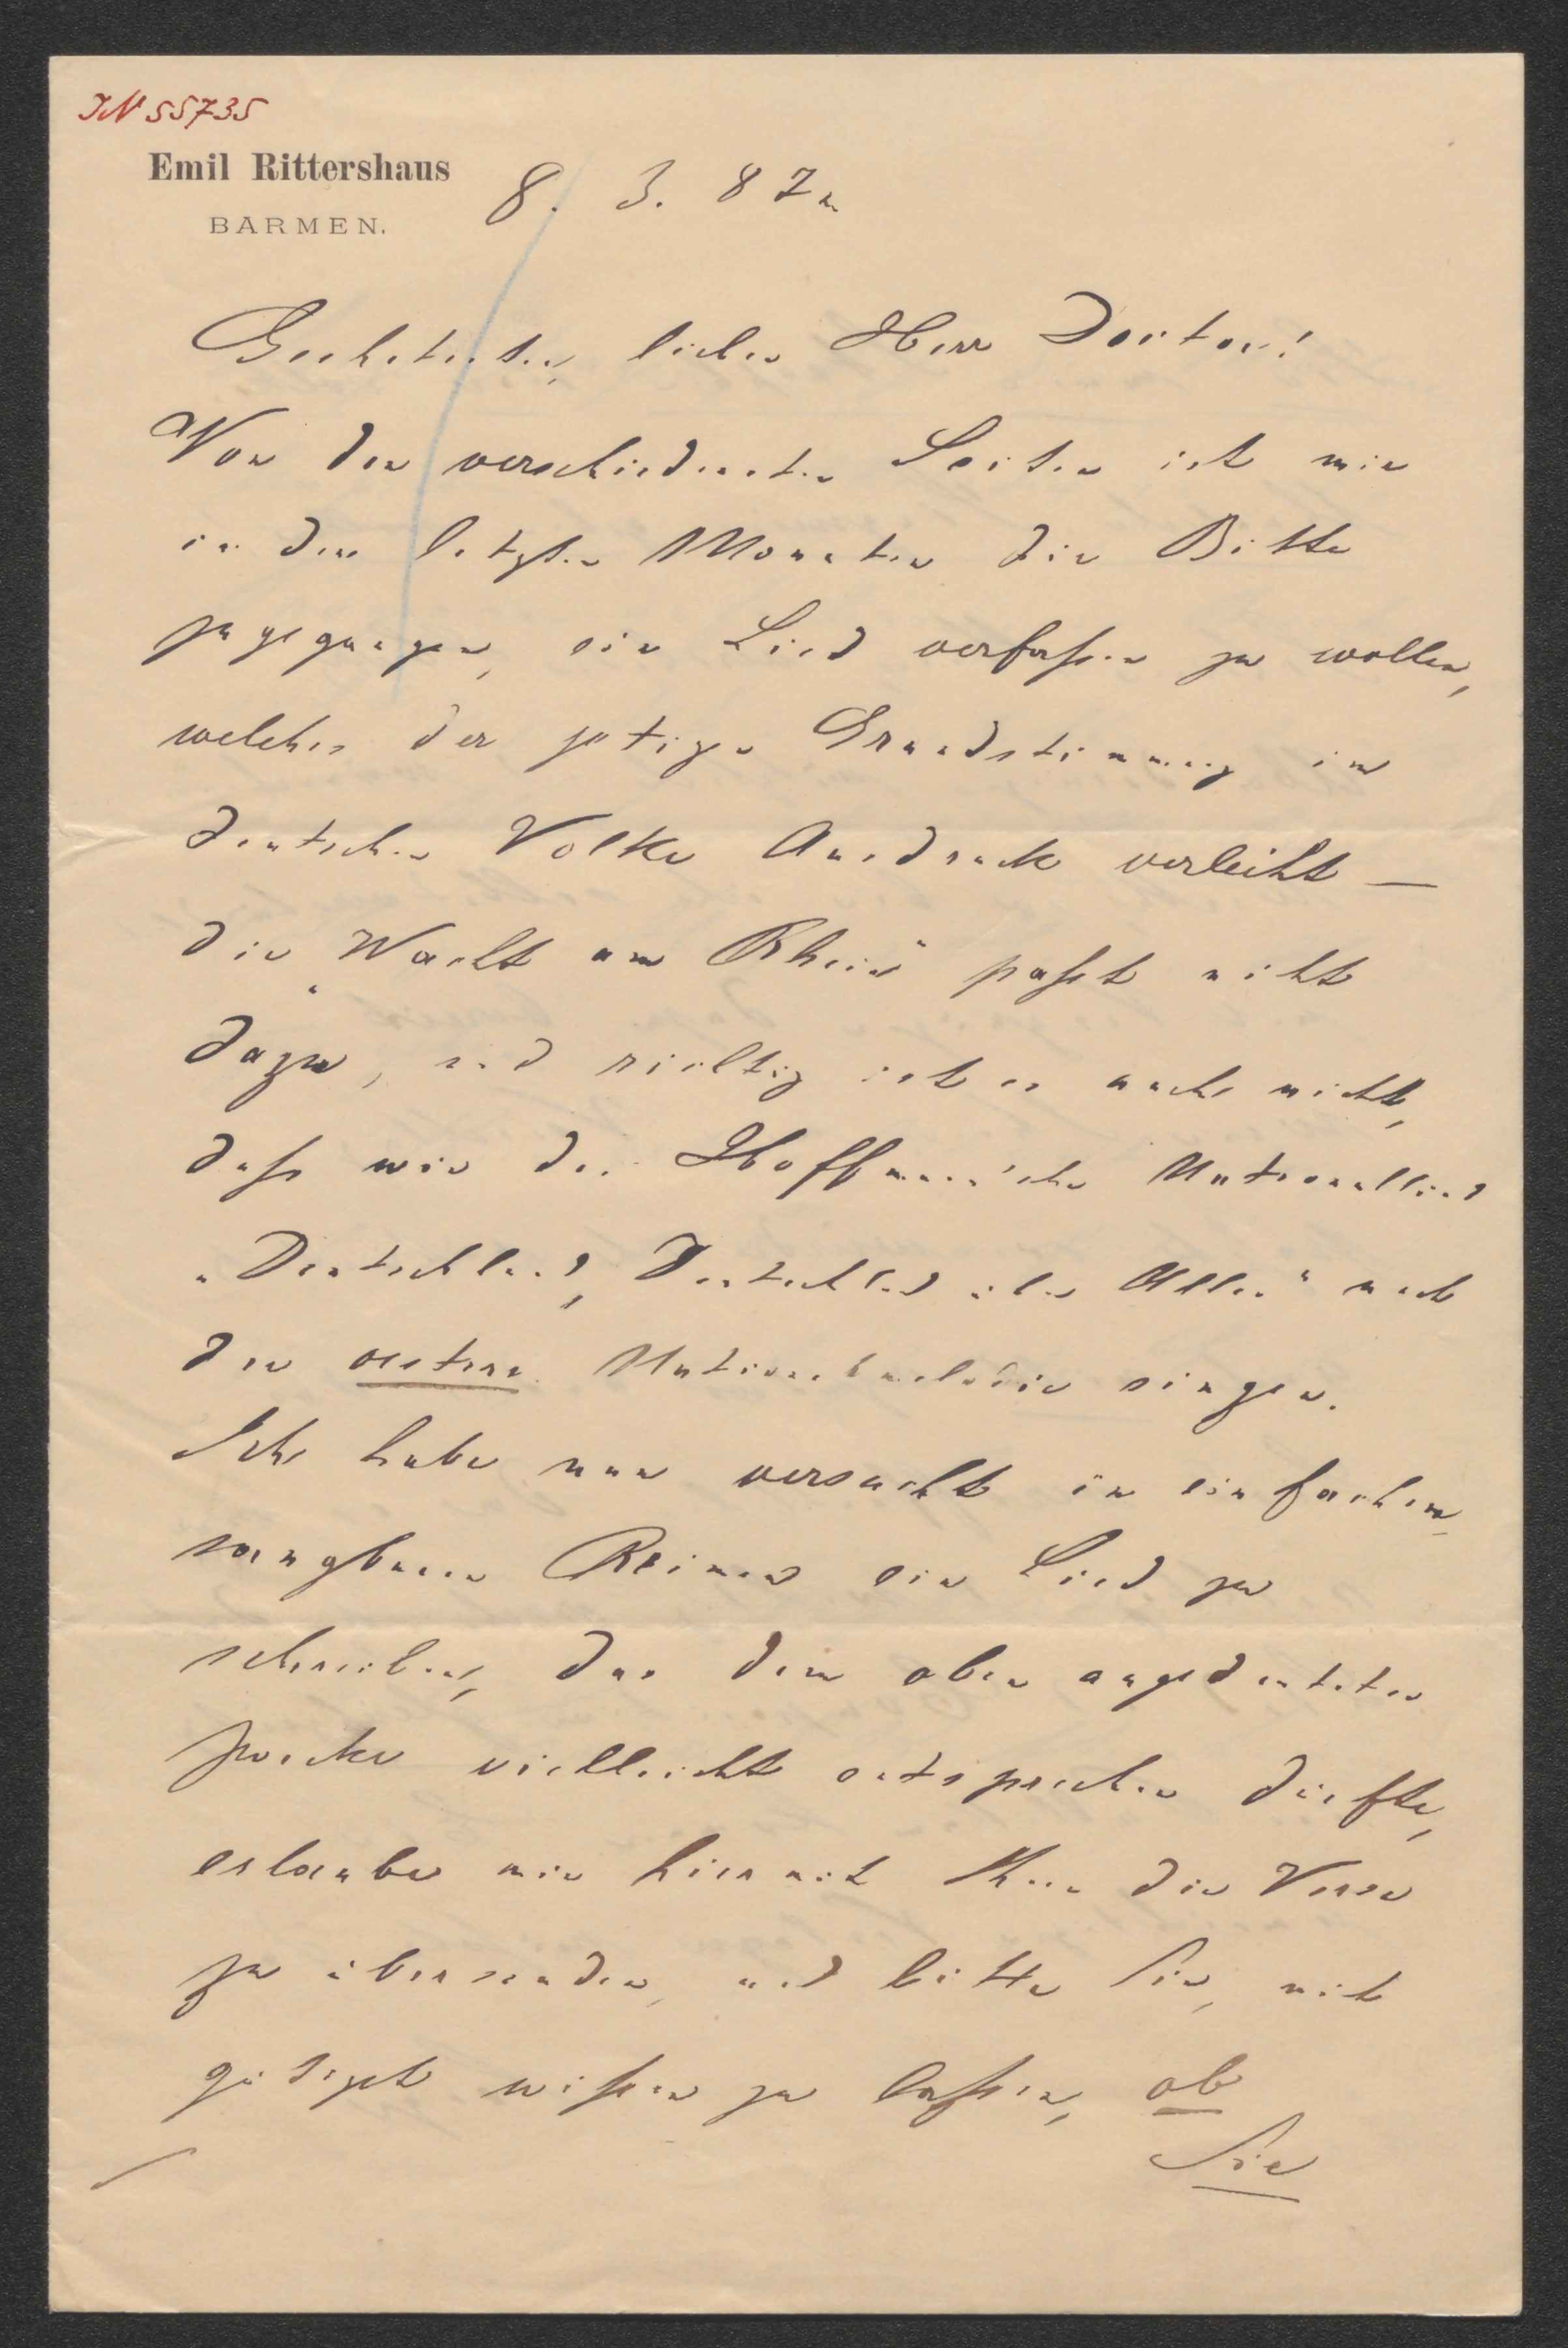 IN 55735
Emil Rittershaus
BARMEN.
8. 3. 87.
Geehrtester, lieber Herr Doctor!
Von den verschiedensten Seiten ist mir
in den letzten Monaten die Bitte
zugegangen, ein Lied verfassen zu wollen,
welches der jetzigen Grundstimmung im
deutschen Volke Ausdruck verleiht —
die „Wacht am Rhein" paßt nicht
dazu, und richtig ist es auch nicht,
daß wir das Hoffmann'sche Nationallied
„Deutschland, Deutschland über Alles" nach
der oesterr. Nationalmelodie singen.
Ich habe nun versucht in einfachen,
sangbaren Reimen ein Lied zu
schreiben, das dem oben angedeuteten
Zwecke vielleicht entsprechen dürfte,
erlaube mir hiermit Ihnen die Verse
zu übersenden, und bitte Sie, mich
gütigst wissen zu lassen, ob
Sie